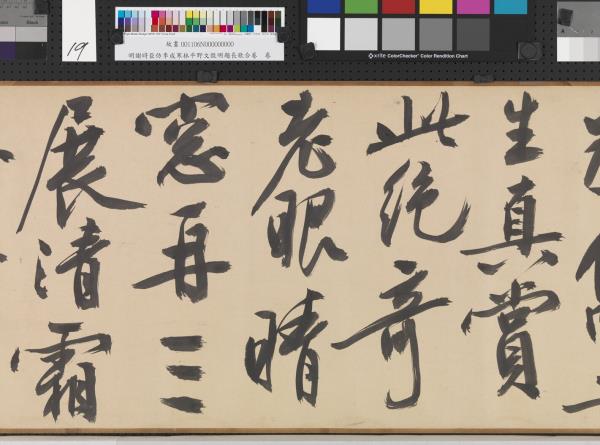 19
故畫 001106N000000000
明謝時臣仿李成寒林平野文徵明題長歌合卷 卷
x-rite ColorChecker Color Rendition Chart
生真賞
此絶奇
老眼晴
窓再三
展清霜